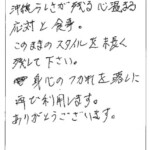 沖縄らしさが残る心温まる
応対と食事。
このままのスタイルを末長く
残して下さい。
身心のつかれを落しに
再び利用します。
ありがとうございます。